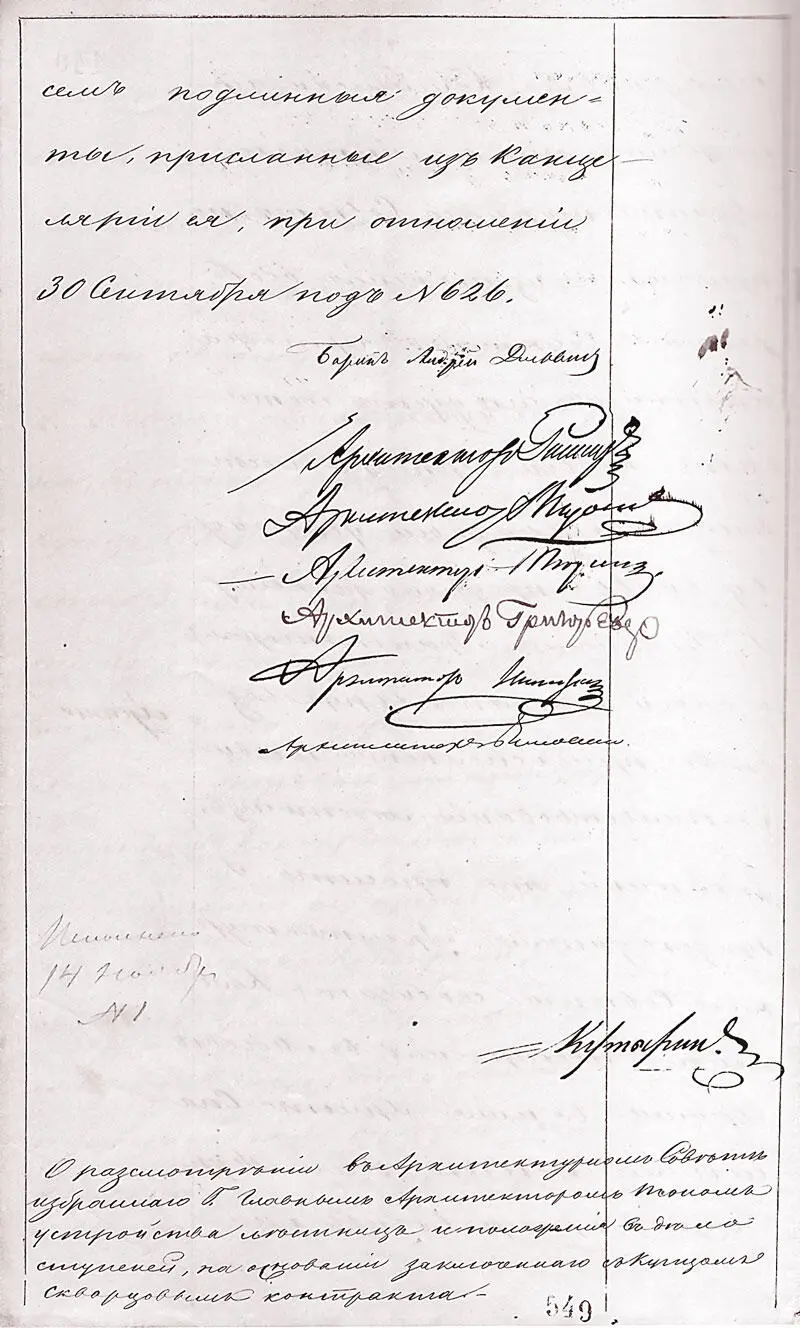 семъ подлинныя докумен=
ты, присланные изъ Канце-
ляріи ея, при отношеніи
30 Сентября подъ N 626.
Баронъ Андрей
Архитекторъ
Архитекторъ
Архитекторъ Тюринъ
Архитекторъ Григорьевъ
Архитекторъ
Архитекторъ
Исполнено
14 Ноябр
N 1
О разсмотреніи въ Архитектурномъ Советъ
избраннаго Г. Главнымъ Архитекторомъ
устройства лестницъ и положенія въ дело
ступеней, на основаніи заключеннаго съ Купцомъ
Скворцовымъ контракта.-
549